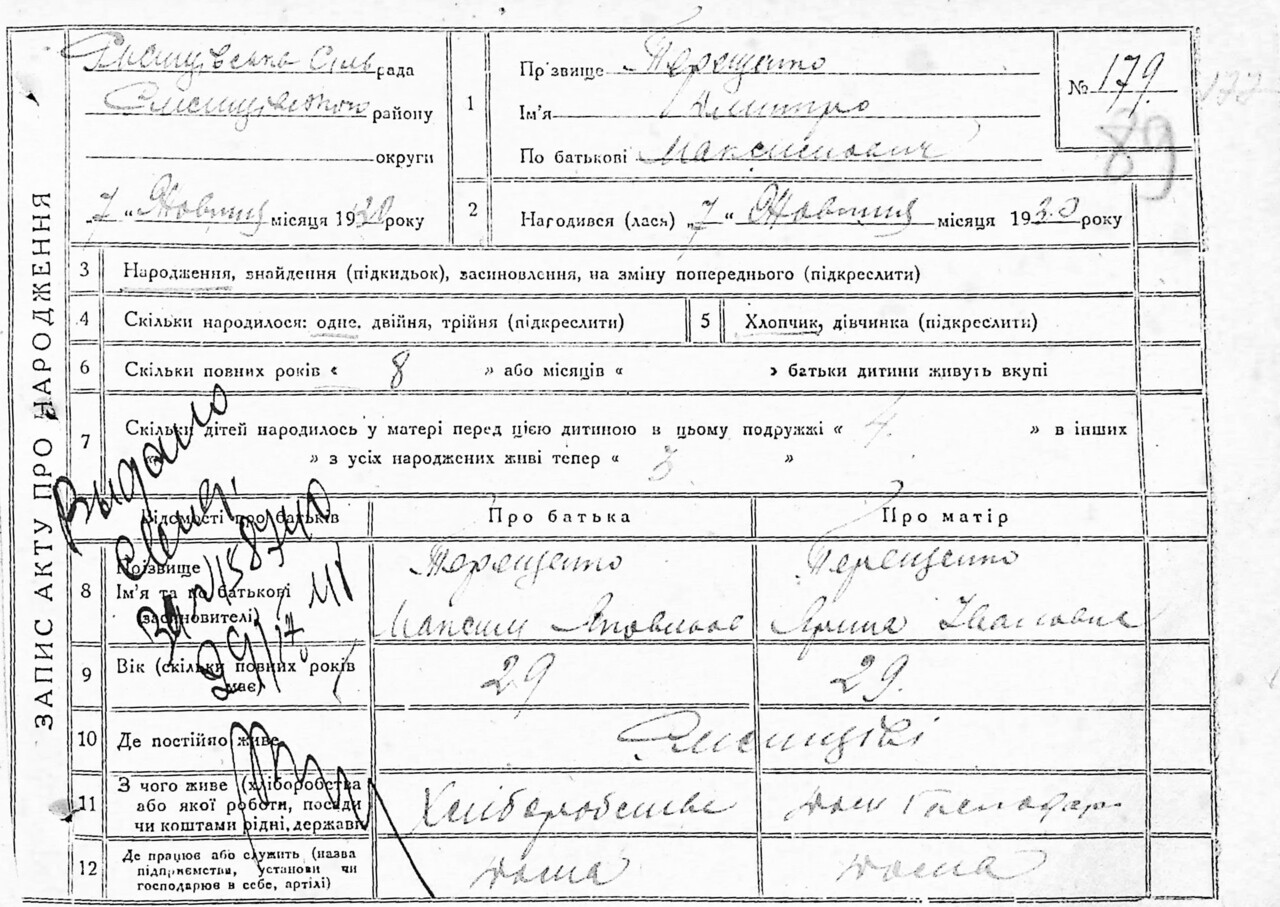 Сільрада
району
округи
„7" Жовтня місяця 1930 року
1
Пр᾿звище Терещенко
Ім᾿я Дмитро
По батькові Максимович
№ 179
177
89
2
Нагодився (лась) „7" Жовтня місяця 1930 року
ЗАПИС АКТУ ПРО НАРОДЖЕННЯ
3 Народження, знайдення (підкидьок), засиновлення, на зміну попереднього (підкреслити)
4 Скільки народилося: одне, двійня, трійня (підкреслити)
5 Хлопчик, дівчинка (підкреслити)
6 Скільки повних років « 8 » або місяців « » батьки дитини живуть вкупі
7 Скільки дітей народилось у матері перед цією дитиною в цьому подружжі « 4 » в інших
» з усіх народжених живі тепер « 3 »
Відомості про батьків
Про батька
Про матір
8 Прізвище
Ім'я та по батькові
(засиновителі)
Терещенко
Максим
Терещенко
Ярина Івановна
9 Вік (скільки повних років
має)
29
29.
10 Де постійно живе
11 З чого живе (хліборобства
або якої роботи, посади
чи коштами рідні, держави
Хліборобства
дом господар
12 Де працює або служить (назва
підприємства, установи чи
господарює в себе, артілі)
дома
дома
Выдано